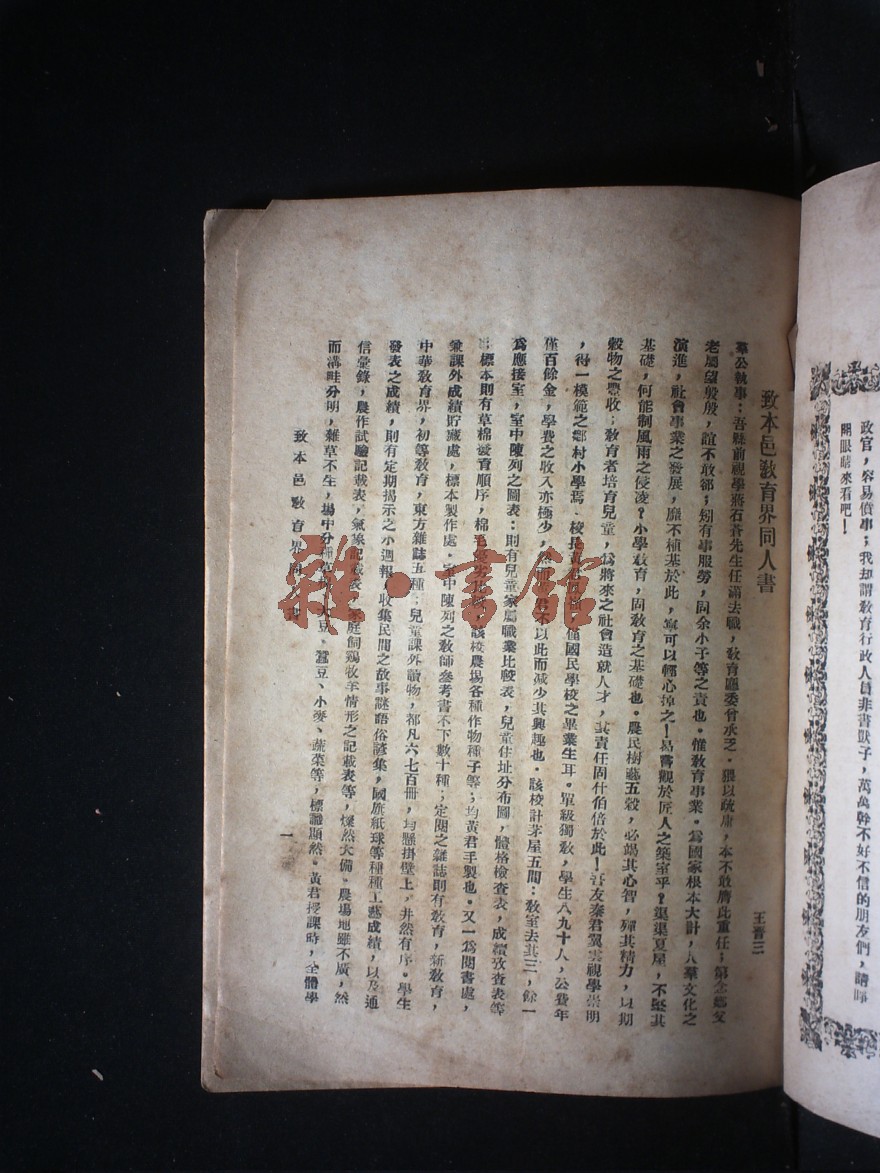 政官，容易僨事；我却謂敎育行政人員非書獃子，萬萬幹不好不信的朋友們，請睜
開眼睛來看吧！
致本邑敎育界同人書
王晉三
羣公執事：吾縣前視學蔣石蒼先生任滿去職，敎育廳委曾承乏。猥以疏庸，本不敢膺此重任；第念鄉父
老屬望殷殷，誼不敢卻；矧有事服勞，固余小子等之責也。惟敎育事業。爲國家根本大計，人羣文化之
演進，社會事業之發展，靡不植基於此，寧可以輕心掉之！曷嘗觀於匠人之築室乎？渠渠夏屋，不堅其
基礎，何能制風雨之侵凌？小學敎育，固敎育之基礎也。農民樹藝五穀，必竭其心智，殫其精力，以期
穀物之豐收；敎育者培育兒童，爲將來之社會造就人才，其責任固什伯倍於此！吾友秦君翼雲視學崇明
，得一模範之鄉村小學焉．校長黃君 僅國民學校之畢業生耳。單級獨敎，學生八九十人，公費年
僅百餘金，學費之收入亦極少，然而黃君不以此而减少其興趣也。該校計茅屋五間；敎室去其三，餘一
爲應接室，室中陳列之圖表：則有兒童家屬職業比較表，兒童住址分布圖，體格檢查表，成績攷查表等
標本則有草棉發育順序，棉毛優劣比較，該校農場各種作物種子等；均黃君手製也。又一爲閱書處，
兼課外成績貯藏處，標本製作處。室中陳列之敎師參考書不下數十種；定閱之雜誌則有敎育，新敎育，
中華敎育界，初等敎育，東方雜誌五種；兒童課外讀物，都凡六七百冊，均懸掛壁上，井然有序。學生
發表之成績，則有定期揭示之小週報，收集民間之故事謎語俗諺集，國旗紙球等種種工藝成績，以及通
信彙錄，農作試驗記載表，氣象記載表，家庭飼鷄牧羊情形之記載表等，燦然大備。農場地雖不廣，然
而溝畦分明，雜草不生，場中分種草棉、大豆、蠶豆、小麥、蔬菜等，標識顯然。黃君授課時，全體學
致本邑敎育界同人書
一
雜·書館